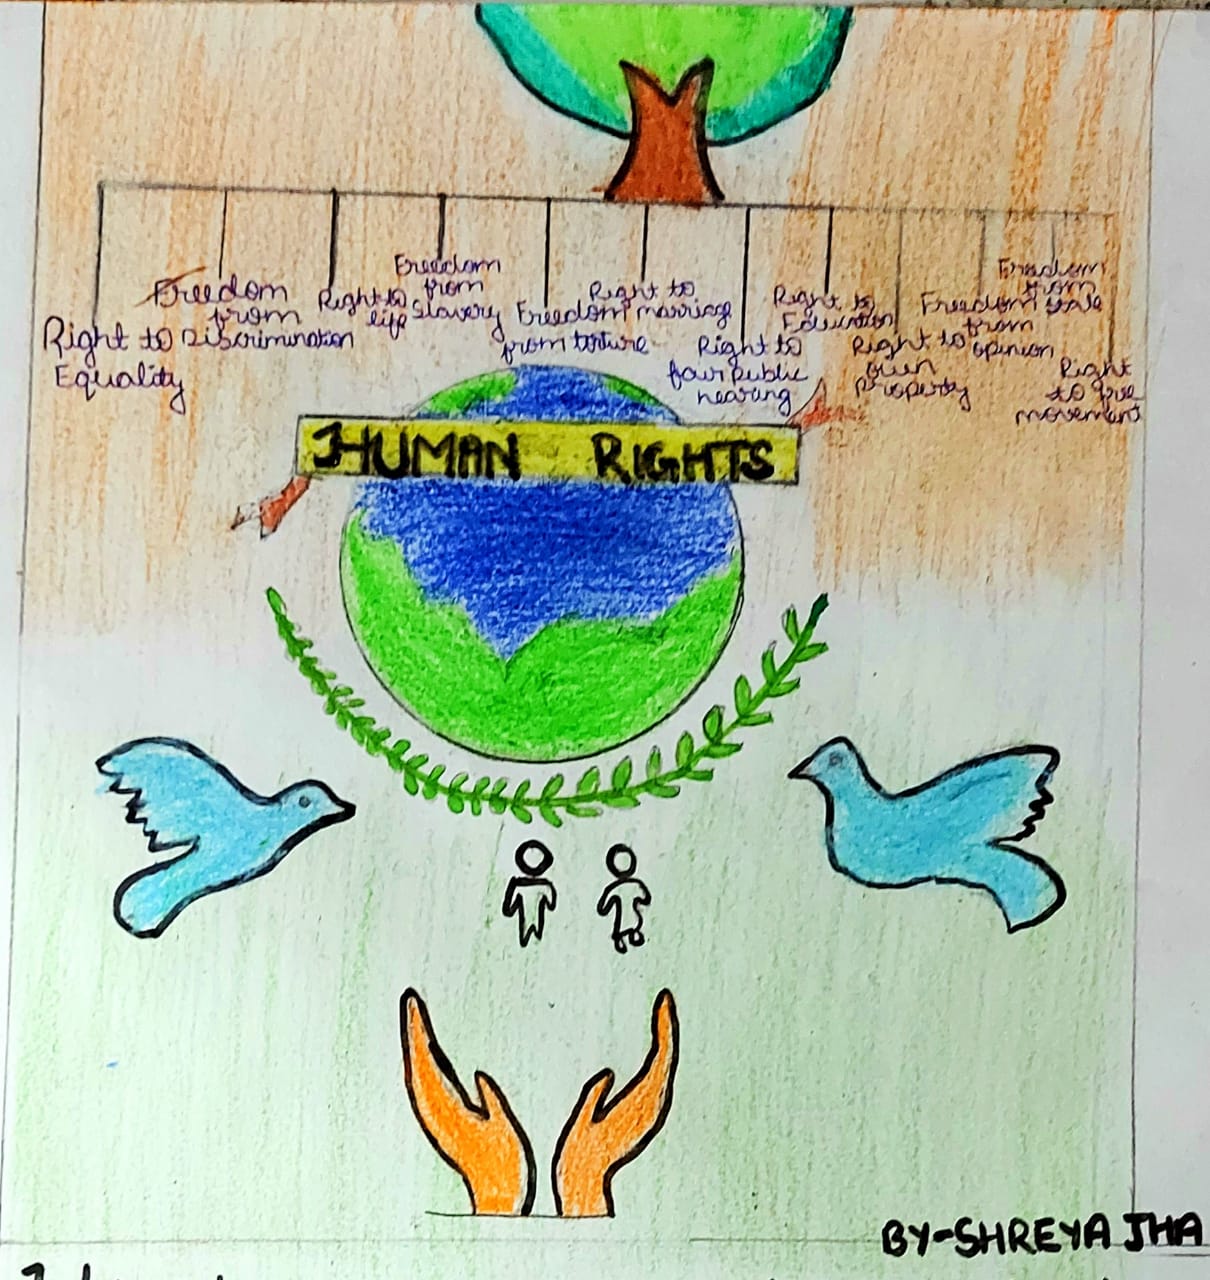 Right to
Equality
Freedom
from
Discrimination
Right to
life
Freedom
from
Slavery
Freedom
from torture
Right to
marriage
Right to
fair public
hearing
Right to
Education
Right to
own
property
Freedom
from
opinion
Freedom
from
Right
to
movement
HUMAN RIGHTS
BY-SHREYA JHA